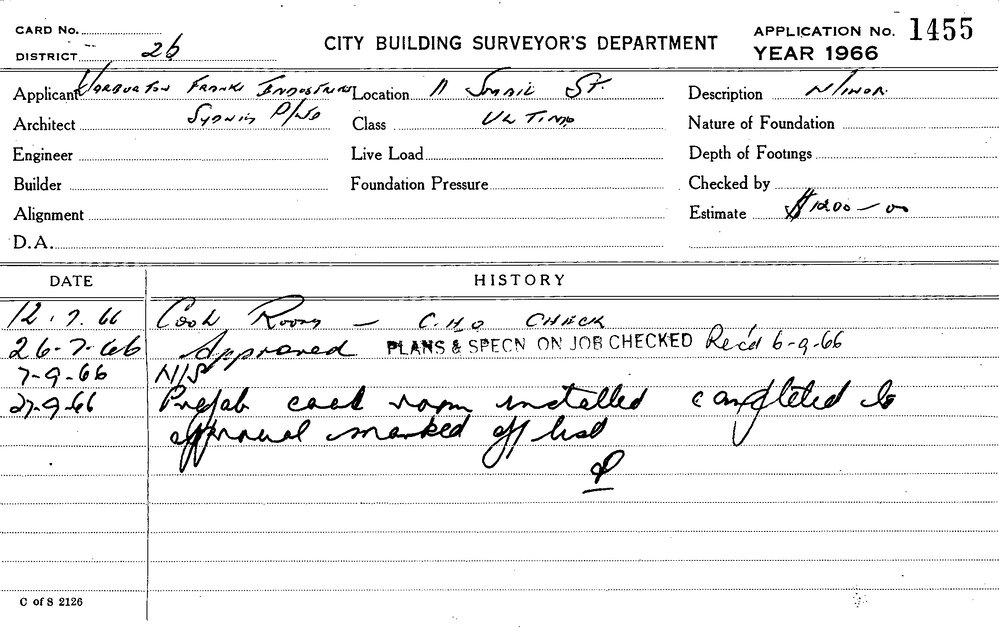 CARD No.
DISTRICT 26
CITY BUILDING SURVEYOR'S DEPARTMENT
APPLICATION No. 1455
YEAR 1966
Applicant Warburton Franki Industries Location 11 Smail St. Description Minor
Architect Sydney P/L Class Ultimo Nature of Foundation
Engineer Live Load Depth of Footings
Builder Foundation Pressure Checked by
Alignment Estimate $1200-00
D.A.
DATE HISTORY
12.7.66 Cool Room - C.H.O CHECK
26-7-66 Approved PLANS & SPECN ON JOB CHECKED Rec'd 6-9-66
7-9-66 N/S
27-9-66 Prefab cool room installed completed to
approval marked off list
C of S 2126